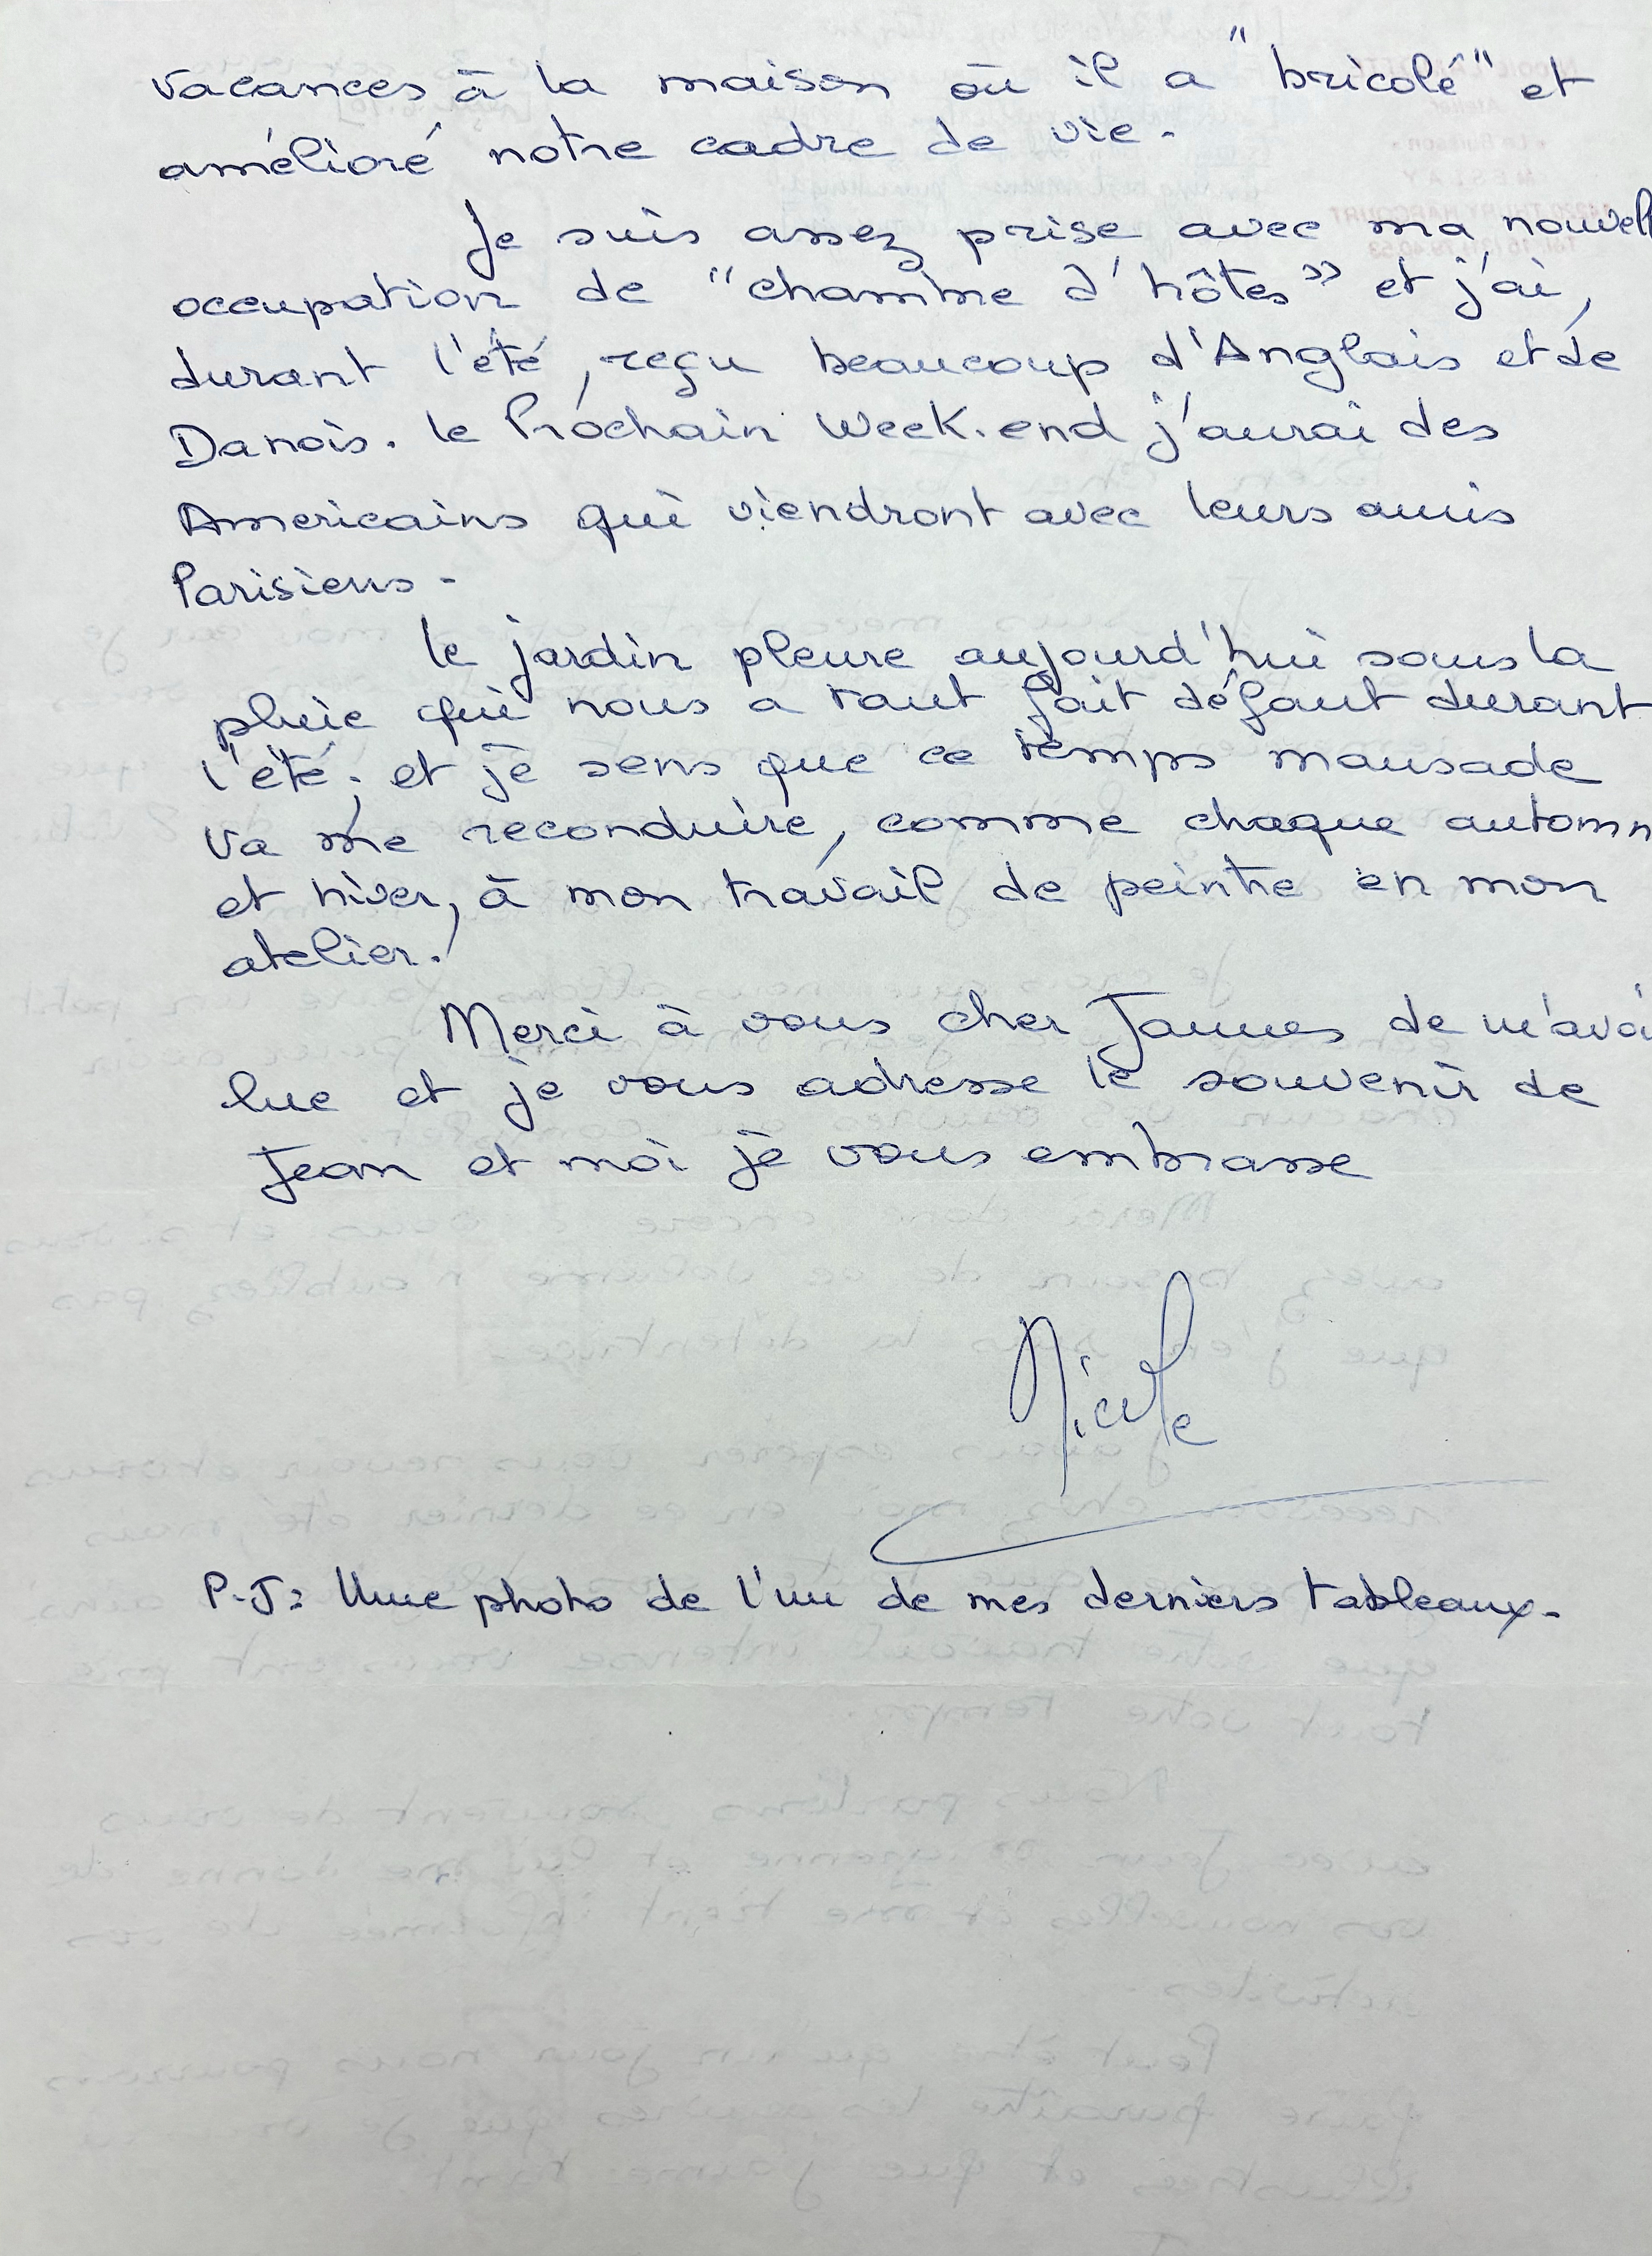 vacances à la maison où il a "bricolé" et
amélioré notre cadre de vie.
Je suis assez prise avec ma nouvell
occupation de "chambre d'hôtes" et j'ai,
durant l'été, reçu beaucoup d'Anglais et de
Danois. le Prochain Week-end j'aurai des
Americains qui viendront avec leurs amis
Parisiens -
le jardin pleure aujourd'hui sous la
pluie qui nous a tant fait défaut durant
l'été; et je sens que ce temps maussade
va me reconduire, comme chaque automn
et hiver, à mon travail de peintre en mon
atelier.
Merci à vous cher James de m'avoi
lue et je vous adresse le souvenir de
Jean et moi je vous embrasse
Nicole
P.J: Une photo de l'un de mes derniers tableaux.